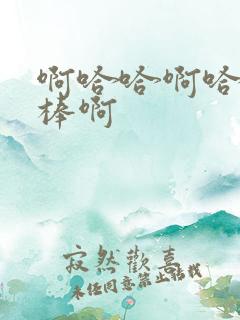 啊哈哈啊哈
棒啊
寂然歡喜
未经同意禁止搭载